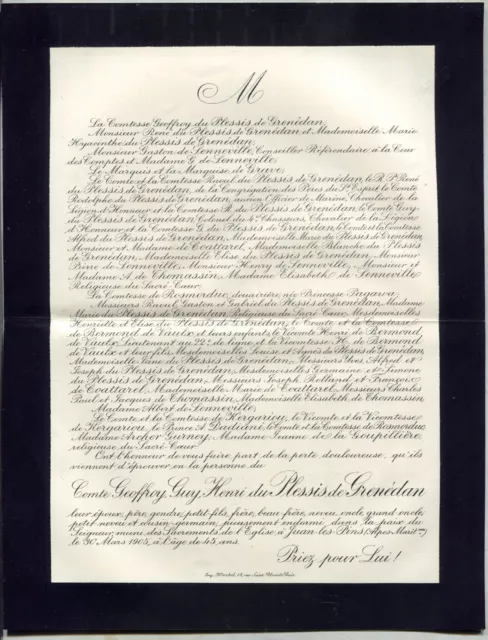 M
La Comtesse Geoffroy du Plessis de Grenédan,
Monsieur René du Plessis de Grenédan et Mademoiselle Marie
Hyacinthe du Plessis de Grenédan,
Monsieur Gaston de Senneville, Conseiller Référendaire à la Cour
des Comptes et Madame G. de Senneville,
Le Marquis et la Marquise de Grave,
Le Comte et la Comtesse Raoul du Plessis de Grenédan, le R. P. René
du Plessis de Grenédan, de la Congrégation des Pères du St Esprit, le Comte
Rodolphe du Plessis de Grenédan, ancien Officier de Marine, Chevalier de la
Légion d'Honneur et la Comtesse R. du Plessis de Grenédan, le Comte Guy
du Plessis de Grenédan, Colonel du Chasseurs, Chevalier de la Légion
d'Honneur et la Comtesse G. du Plessis de Grenédan, le Comte et la Comtesse
Alfred du Plessis de Grenédan, Mademoiselle Marie du Plessis de Grenédan,
Monsieur et Madame de Coattarel, Mademoiselle Blanche du Plessis
de Grenédan, Mademoiselle Elise du Plessis de Grenédan, Monsieur
Pierre de Senneville, Monsieur Henry de Senneville, Monsieur et
Madame A. de Thomassin, Madame Elisabeth de Senneville
Religieuse du Sacré-Cœur,
La Comtesse de Rosmorduc, douairière, née Princesse Pagava,
Messieurs Raoul, Gaston et Gabriel du Plessis de Grenédan, Madame
Marie du Plessis de Grenédan, Religieuse du Sacré-Cœur, Mesdemoiselles
Henriette et Elise du Plessis de Grenédan, le Comte et la Comtesse
de Bermond de Vaulx et leurs enfants, le Vicomte Henri de Bermond
de Vaulx Lieutenant au 22e de ligne et la Vicomtesse H. de Bermond
de Vaulx et leur fils, Mesdemoiselles Jeanne et Agnès du Plessis de Grenédan,
Mademoiselle Jane du Plessis de Grenédan, Messieurs Yves, Alfred et
Joseph du Plessis de Grenédan, Mesdemoiselles Germaine et Simone
du Plessis de Grenédan, Messieurs Joseph, Rolland et François
de Coattarel, Mademoiselle Marie de Coattarel, Messieurs Charles
Paul et Jacques de Thomassin, Mademoiselle Elisabeth de Thomassin
Madame Albert de Senneville,
Le Comte et la Comtesse de Kergariou, le Vicomte et la Vicomtesse
de Kergariou, le Prince A. Dadiani, le Comte et la Comtesse de Rosmorduc,
Madame Archer Gurney, Madame Jeanne de la Goupillière,
religieuse du Sacré-Cœur
Ont l'honneur de vous faire part de la perte douloureuse qu'ils
viennent d'éprouver en la personne du
Comte Geoffroy, Guy, Henri du Plessis de Grenédan
leur époux, père, gendre, petit-fils, frère, beau-frère, neveu, oncle, grand oncle,
petit-neveu et cousin-germain, pieusement endormi dans la paix du
Seigneur, muni des Sacrements de l'Eglise, à Juan-les-Pins (Alpes Maritmes)
le 30 Mars 1905, à l'âge de 45 ans.
Priez pour Lui!